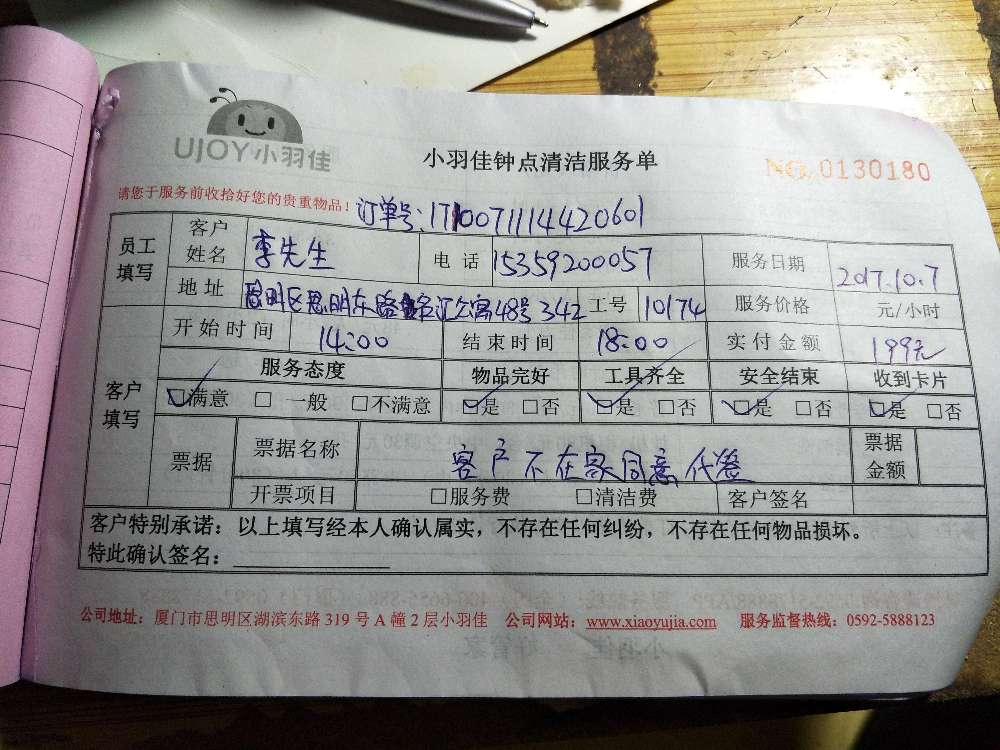 UJOY小羽佳
小羽佳钟点清洁服务单
NO. 0130180
请您于服务前收拾好您的贵重物品!
订单号:1710071114420601
员工填写 客户姓名 李先生 电话 15359200057 服务日期 2017.10.7
地址 思明区思明东路 公寓48号342 工号 10174 服务价格 元/小时
客户填写 开始时间 14:00 结束时间 18:00 实付金额 199元
服务态度 物品完好 工具齐全 安全结束 收到卡片
☑满意 □一般 □不满意 ☑是 □否 ☑是 □否 ☑是 □否 ☑是 □否
票据 票据名称 客户不在家同意代签 票据金额
开票项目 □服务费 □清洁费 客户签名
客户特别承诺:以上填写经本人确认属实,不存在任何纠纷,不存在任何物品损坏。
特此确认签名:
公司地址:厦门市思明区湖滨东路 319 号 A 幢 2 层小羽佳 公司网站:www.xiaoyujia.com 服务监督热线:0592-5888123